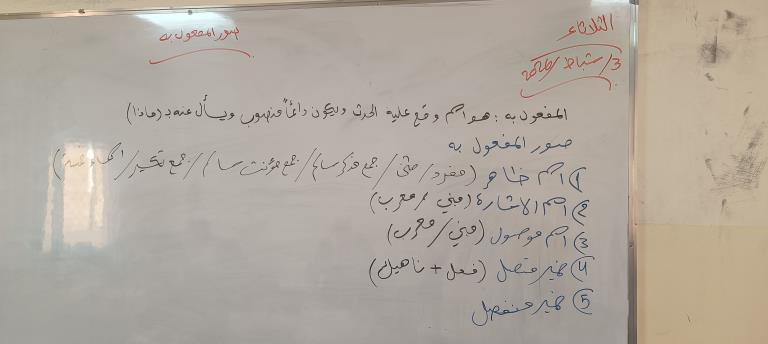 الثلاثاء
صور المفعول به
3/ شباط
المفعول به : هو اسم وقع عليه الحدث ويكون دائماً منصوب ويسأل عنه بـ (ماذا)
صور المفعول به
1) اسم ظاهر (مفرد / مثنى / جمع مذكر سالم / جمع مؤنث سالم / جمع تكسير /
2) اسم الاشارة (مبني / معرب)
3) اسم موصول (مبني / معرب)
4) ضمير متصل (فعل + ناهيك)
5) ضمير منفصل